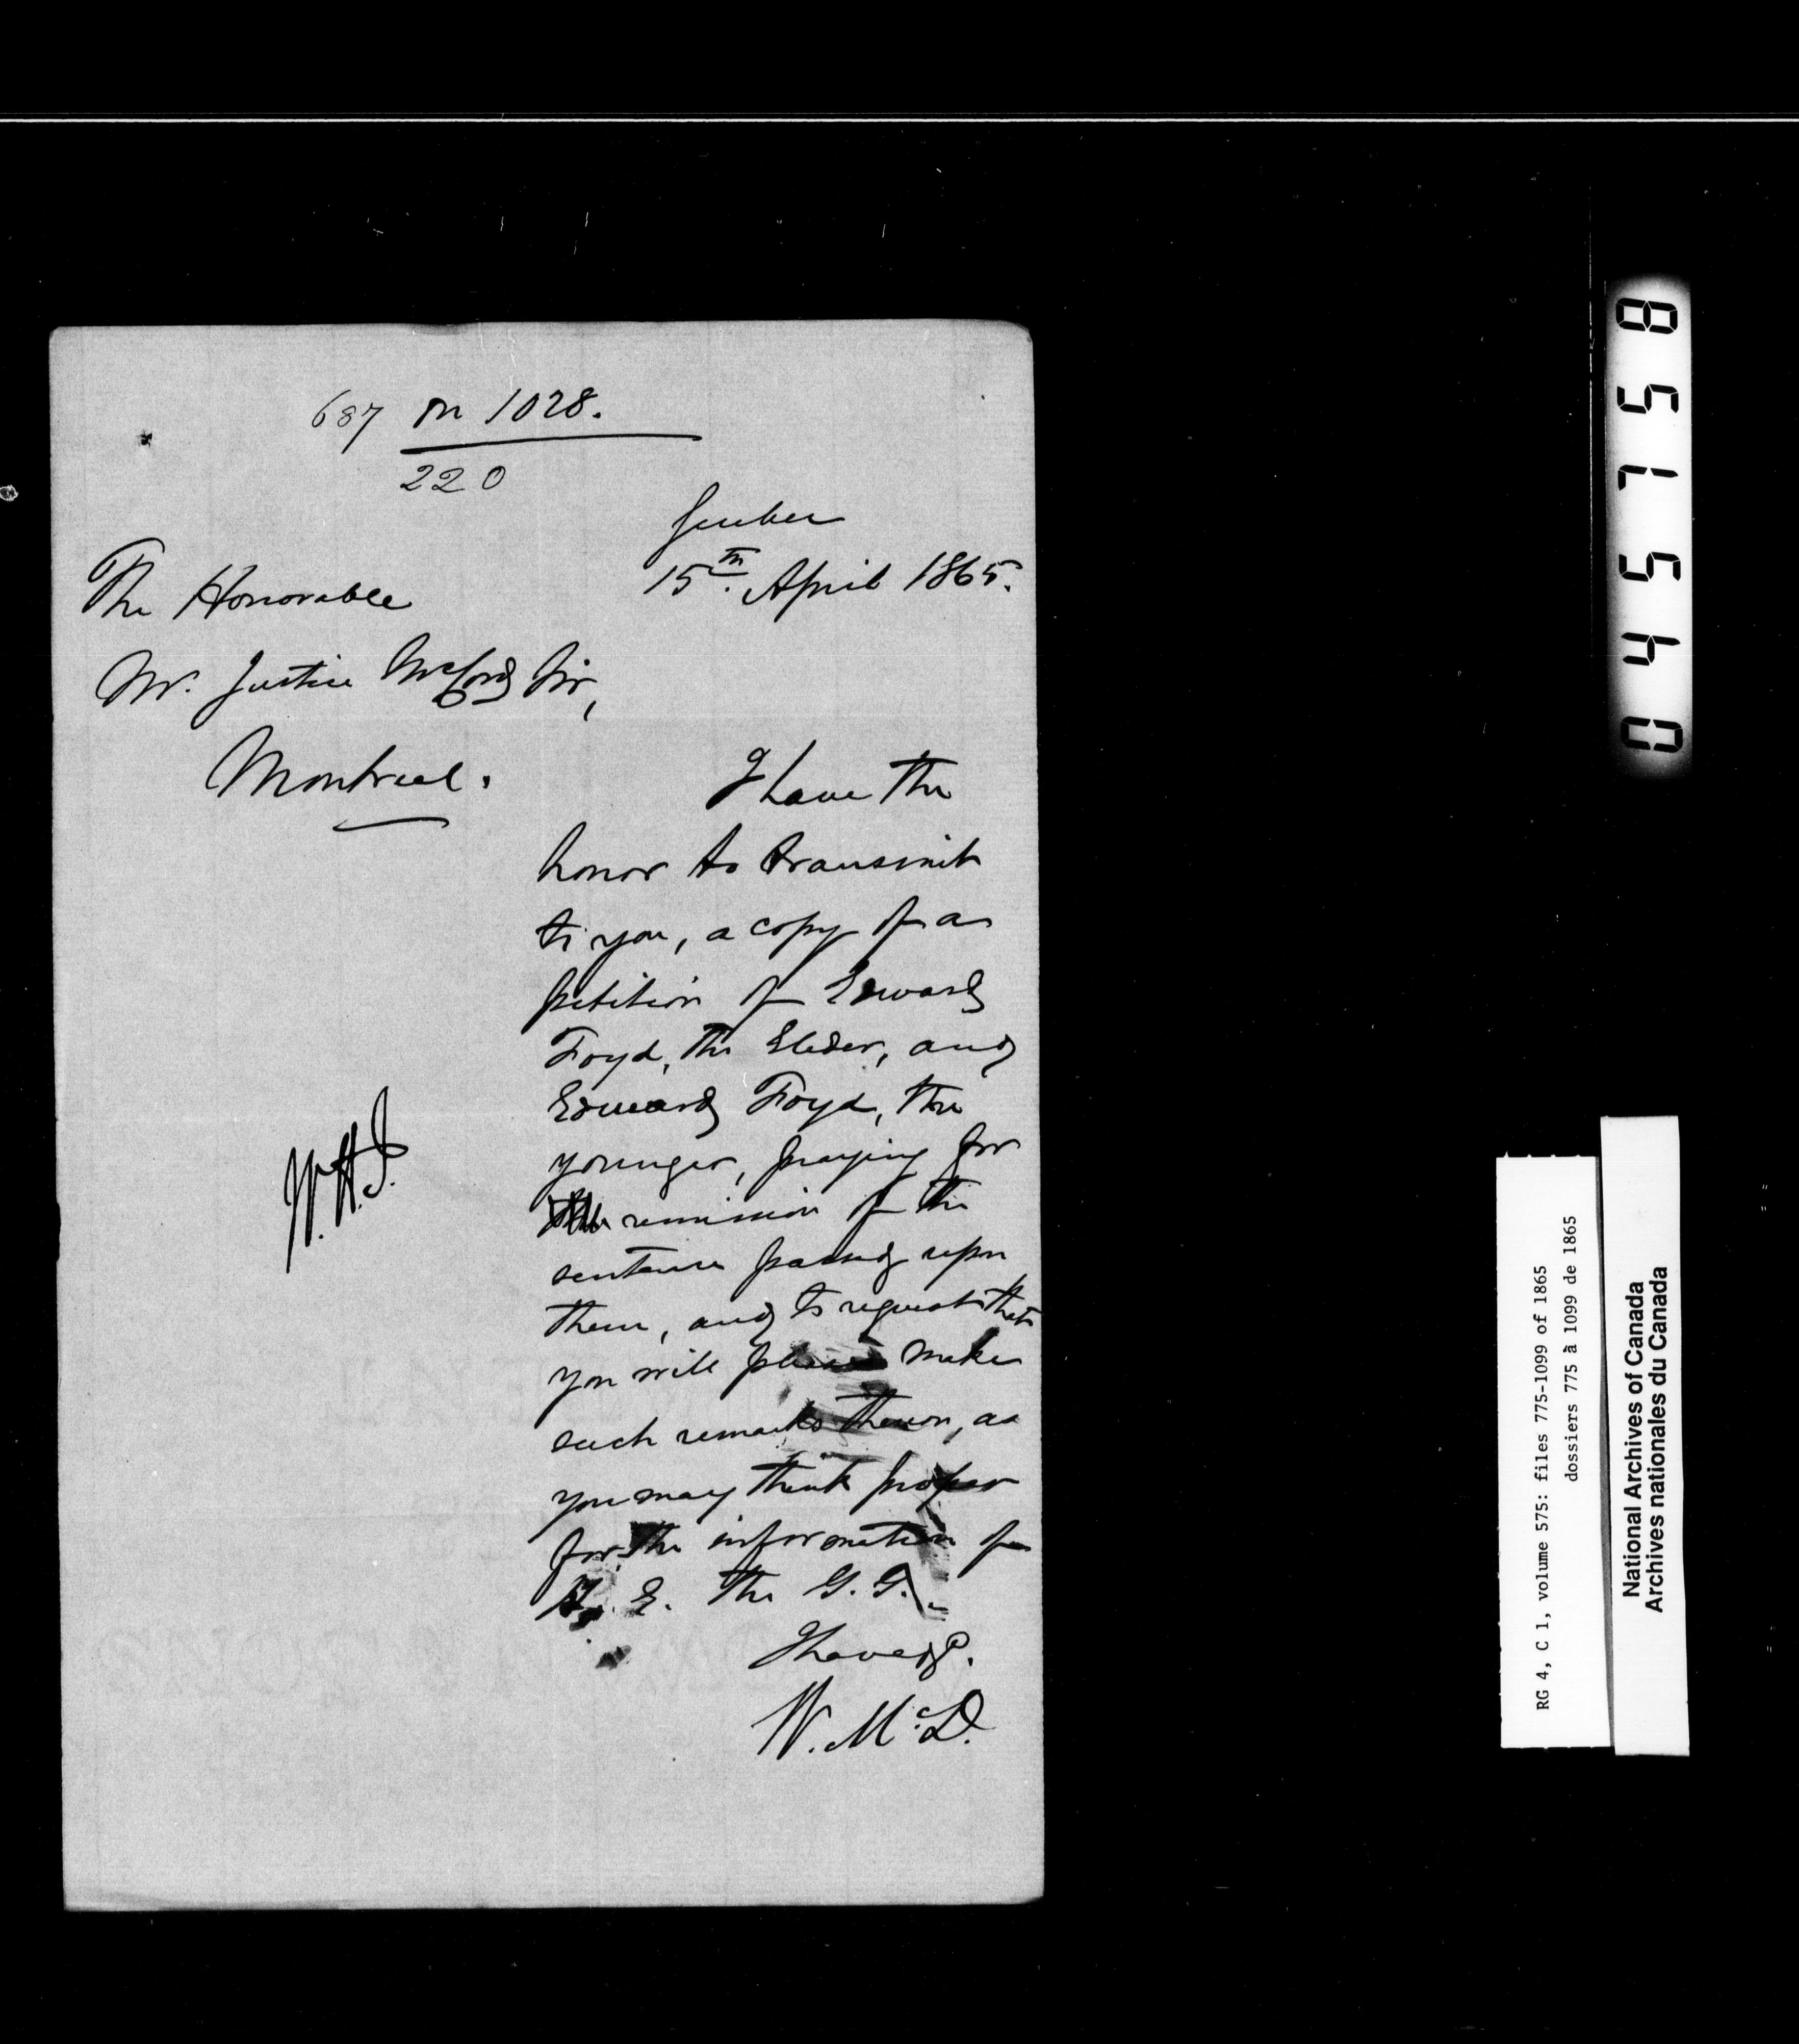 687 on 1028.
220
Quebec
15th. April 1865.
The Honorable
Mr. Justice McCord Sir,
Montreal.
I have the
honor to transmit
to you, a copy of a
petition of Edward
Foyd, the Elder, and
Edward Foyd, the
younger, praying for
remission of the
sentence passed upon
them, and to request that
you will please make
such remarks thereon, as
you may think proper
for the information of
H. E. the G. G.
I have &c.
W. McD.
W.H.J.
851540
RG 4, C 1, volume 575: files 775-1099 of 1865
dossiers 775 à 1099 de 1865
National Archives of Canada
Archives nationales du Canada